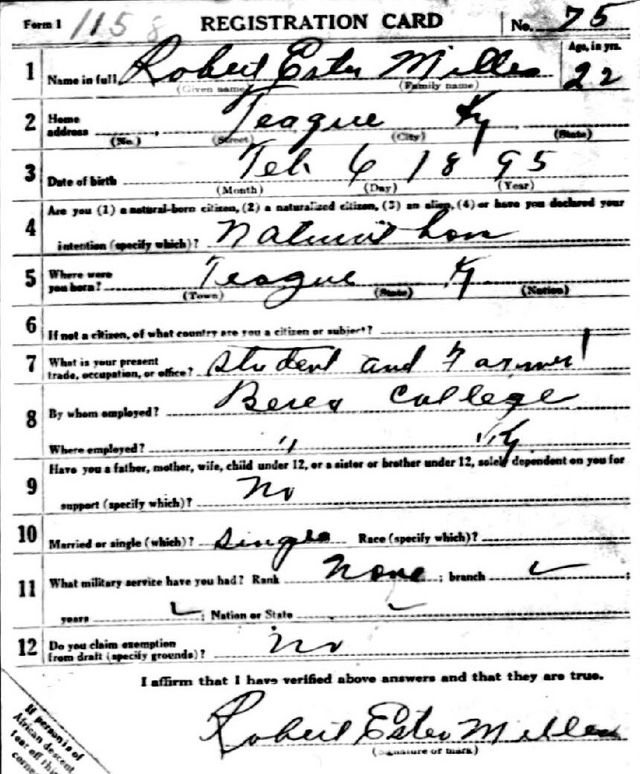 Form 1 1158 REGISTRATION CARD No. 75
1 Name in full Robert Ester Miller Age, in yrs. 22
(Given name) (Family name)
2 Home address Teague Ky
(No.) (Street) (City) (State)
3 Date of birth Feb 6 1895
(Month) (Day) (Year)
4 Are you (1) a natural-born citizen, (2) a naturalized citizen, (3) an alien, (4) or have you declared your
intention (specify which)? Natural born
5 Where were you born? Teague Ky
(Town) (State) (Nation)
6 If not a citizen, of what country are you a citizen or subject?
7 What is your present trade, occupation, or office? Student and Farmer
8 By whom employed? Berea College
Where employed? " " Ky
9 Have you a father, mother, wife, child under 12, or a sister or brother under 12, solely dependent on you for
support (specify which)? No
10 Married or single (which)? Single Race (specify which)?
11 What military service have you had? Rank None ; branch ✓ ;
years ✓ ; Nation or State ✓
12 Do you claim exemption from draft (specify grounds)? No
I affirm that I have verified above answers and that they are true.
Robert Ester Miller
(Signature or mark)
If person is of
African descent
tear off this
corner